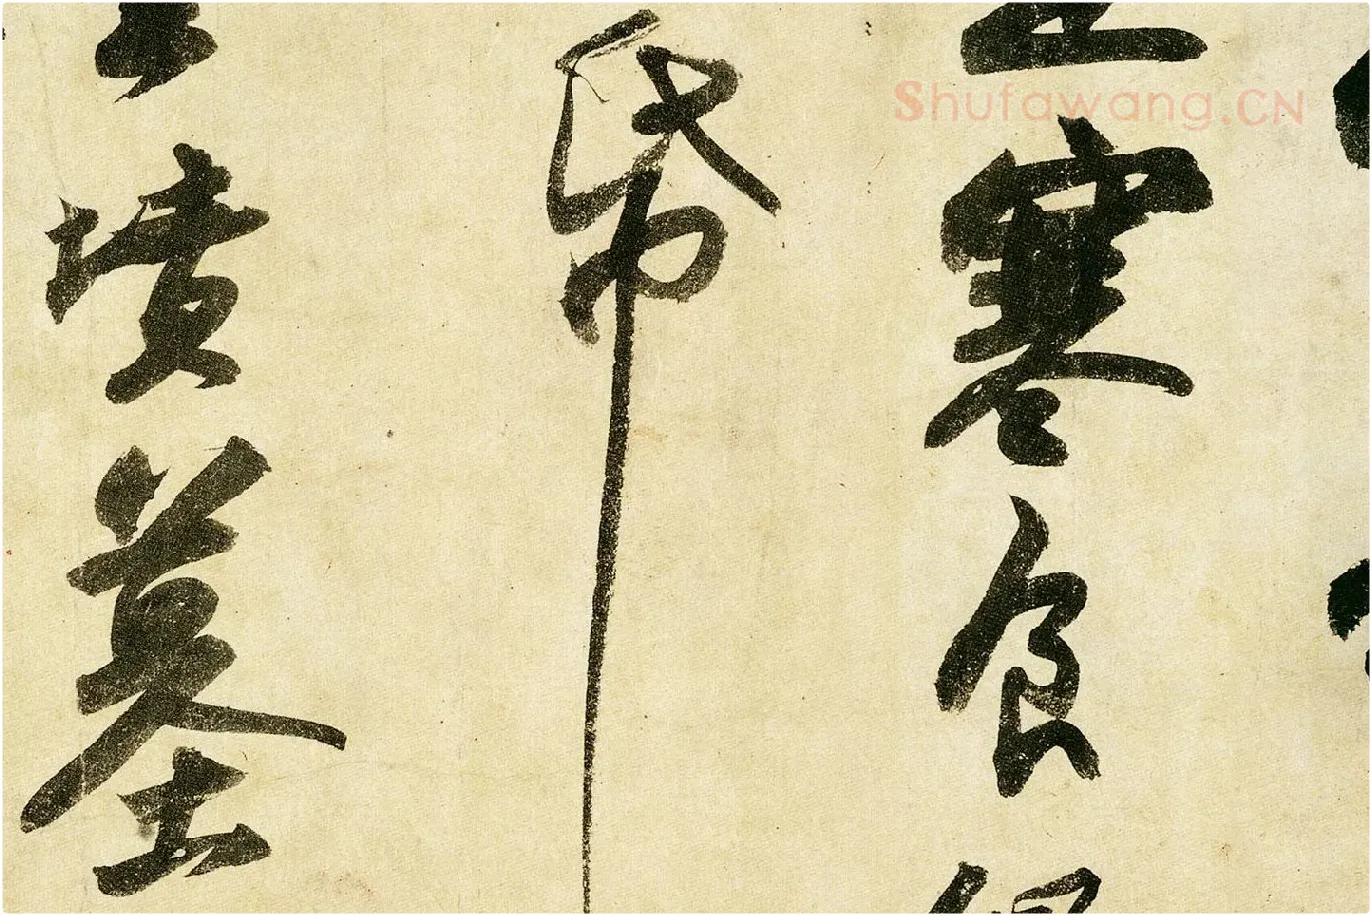 Shufawang.CN
寒食
帋
墳墓